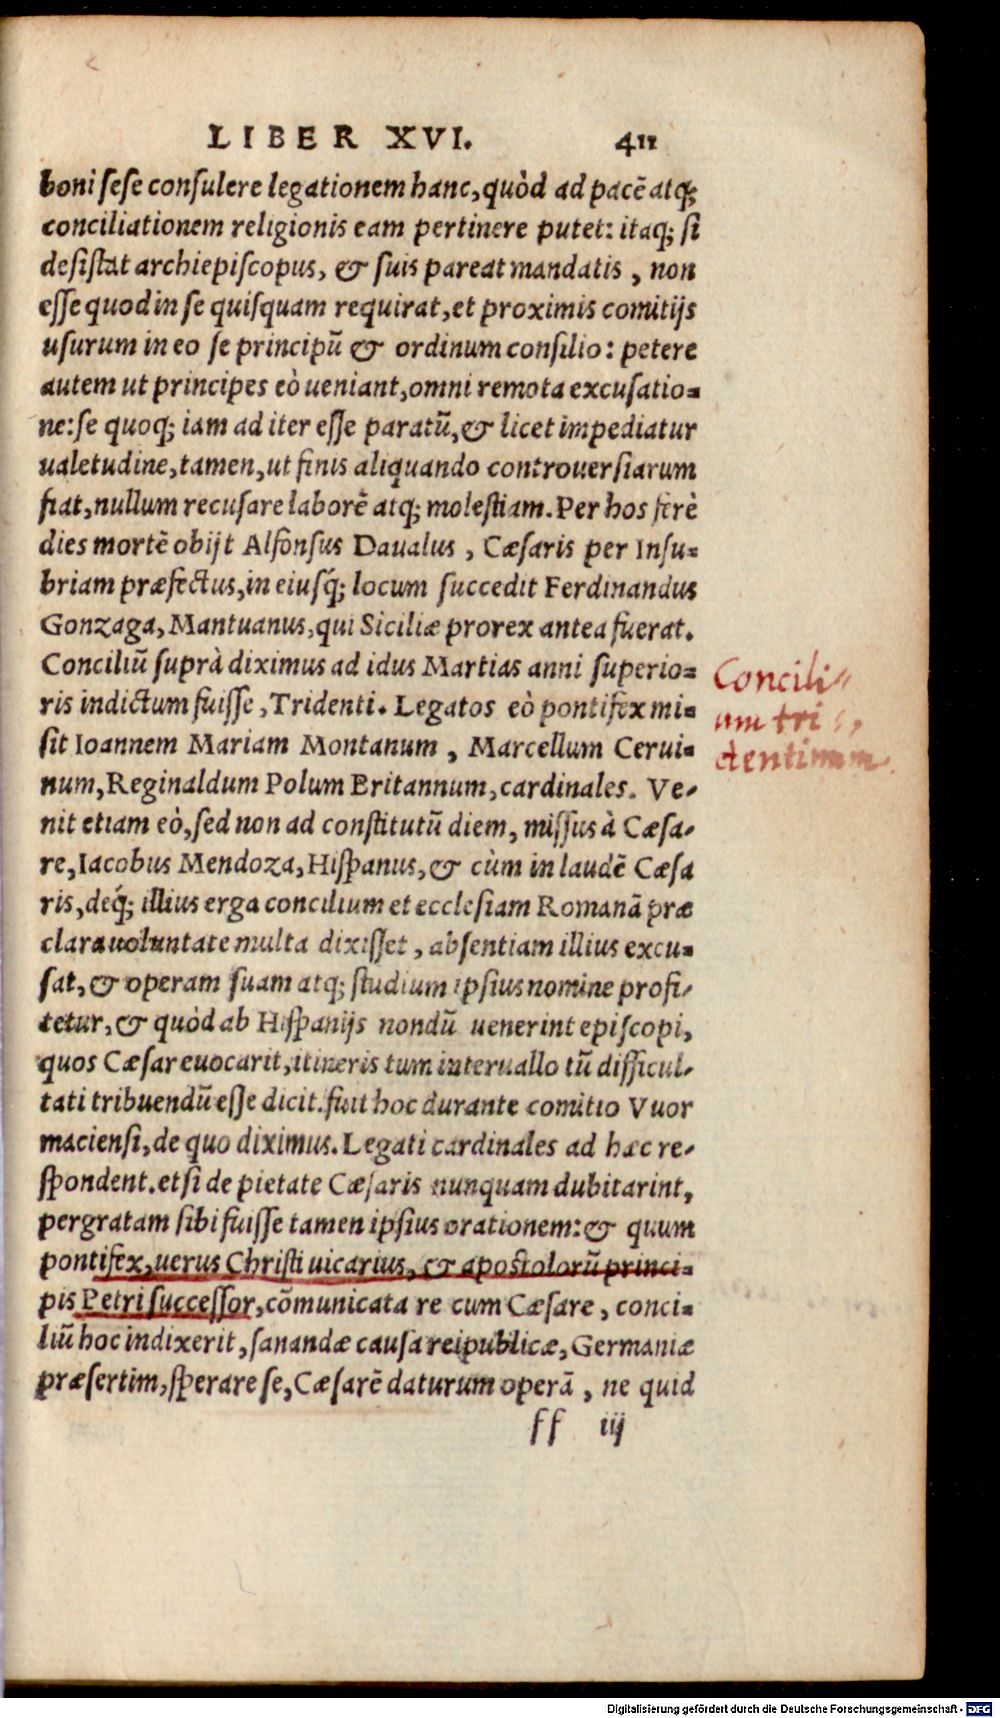 LIBER XVI. 411
boni sese consulere legationem hanc, quòd ad pacē atq;
conciliationem religionis eam pertinere putet: itaq; si
desistat archiepiscopus, & suis pareat mandatis, non
esse quod in se quisquam requirat, et proximis comitijs
usurum in eo se principū & ordinum consilio: petere
autem ut principes eò ueniant, omni remota excusatio=
ne: se quoq; iam ad iter esse paratū, & licet impediatur
ualetudine, tamen, ut finis aliquando controuersiarum
fiat, nullum recusare laborē atq; molestiam. Per hos ferè
dies mortē obijt Alfonsus Daualus, Cæsaris per Insu=
briam præfectus, in eiusq́; locum succedit Ferdinandus
Gonzaga, Mantuanus, qui Siciliæ prorex antea fuerat.
Conciliū suprà diximus ad idus Martias anni superio=
ris indictum fuisse, Tridenti. Legatos eò pontifex mi=
sit Ioannem Mariam Montanum, Marcellum Cerui=
num, Reginaldum Polum Britannum, cardinales. Ve-
nit etiam eò, sed non ad constitutū diem, missus à Cæsa-
re, Iacobus Mendoza, Hispanus, & cùm in laudē Cæsa
ris, deq́; illius erga concilium et ecclesiam Romanā præ
clara uoluntate multa dixisset, absentiam illius excu=
sat, & operam suam atq; studium ipsius nomine profi-
tetur, & quòd ab Hispanijs nondū uenerint episcopi,
quos Cæsar euocarit, itineris tum interuallo tū difficul-
tati tribuendū esse dicit. fuit hoc durante comitio Vuor
maciensi, de quo diximus. Legati cardinales ad hæc re-
spondent. etsi de pietate Cæsaris nunquam dubitarint,
pergratam sibi fuisse tamen ipsius orationem: & quum
pontifex, uerus Christi uicarius, & apostolorū princi=
pis Petri successor, cōmunicata re cum Cæsare, conci=
liū hoc indixerit, sanandæ causa reipublicæ, Germaniæ
præsertim, sperare se, Cæsarē daturum operā, ne quid
ff iij
Concili"
um tri
dentinum
Digitalisierung gefördert durch die Deutsche Forschungsgemeinschaft - DFG